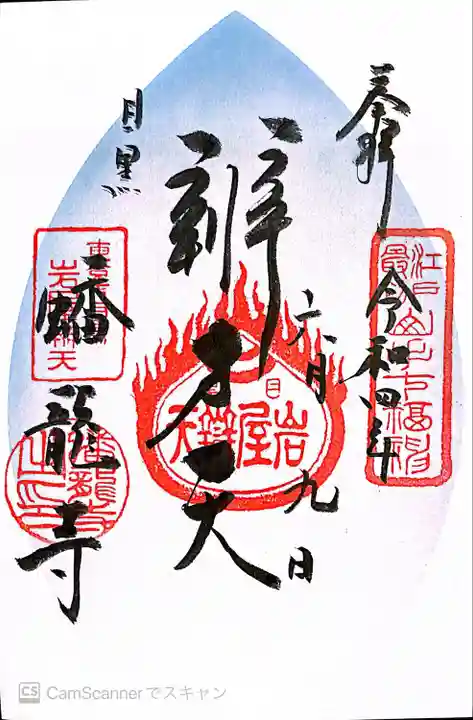 奉拝
令和四年
六月九日
辨才天
目黒
蟠龍寺
岩屋辨天
江戸最初山之手七福神
蟠龍寺之印
CS CamScannerでスキャン